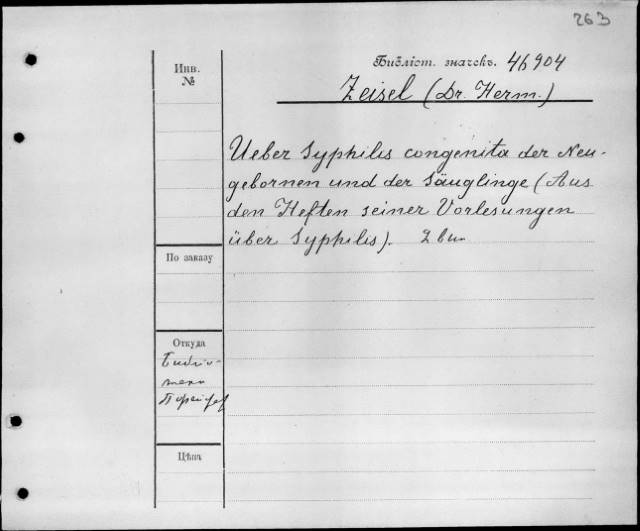 263
Библіот. значекъ. 46904
Инв.
№
Zeisel (Dr. Herm.)
Ueber Syphilis congenita der Neu-
gebornen und der Säuglinge (Aus
den Heften seiner Vorlesungen
über Syphilis).
По заказу
Откуда
Библіо-
тека
Цѣна